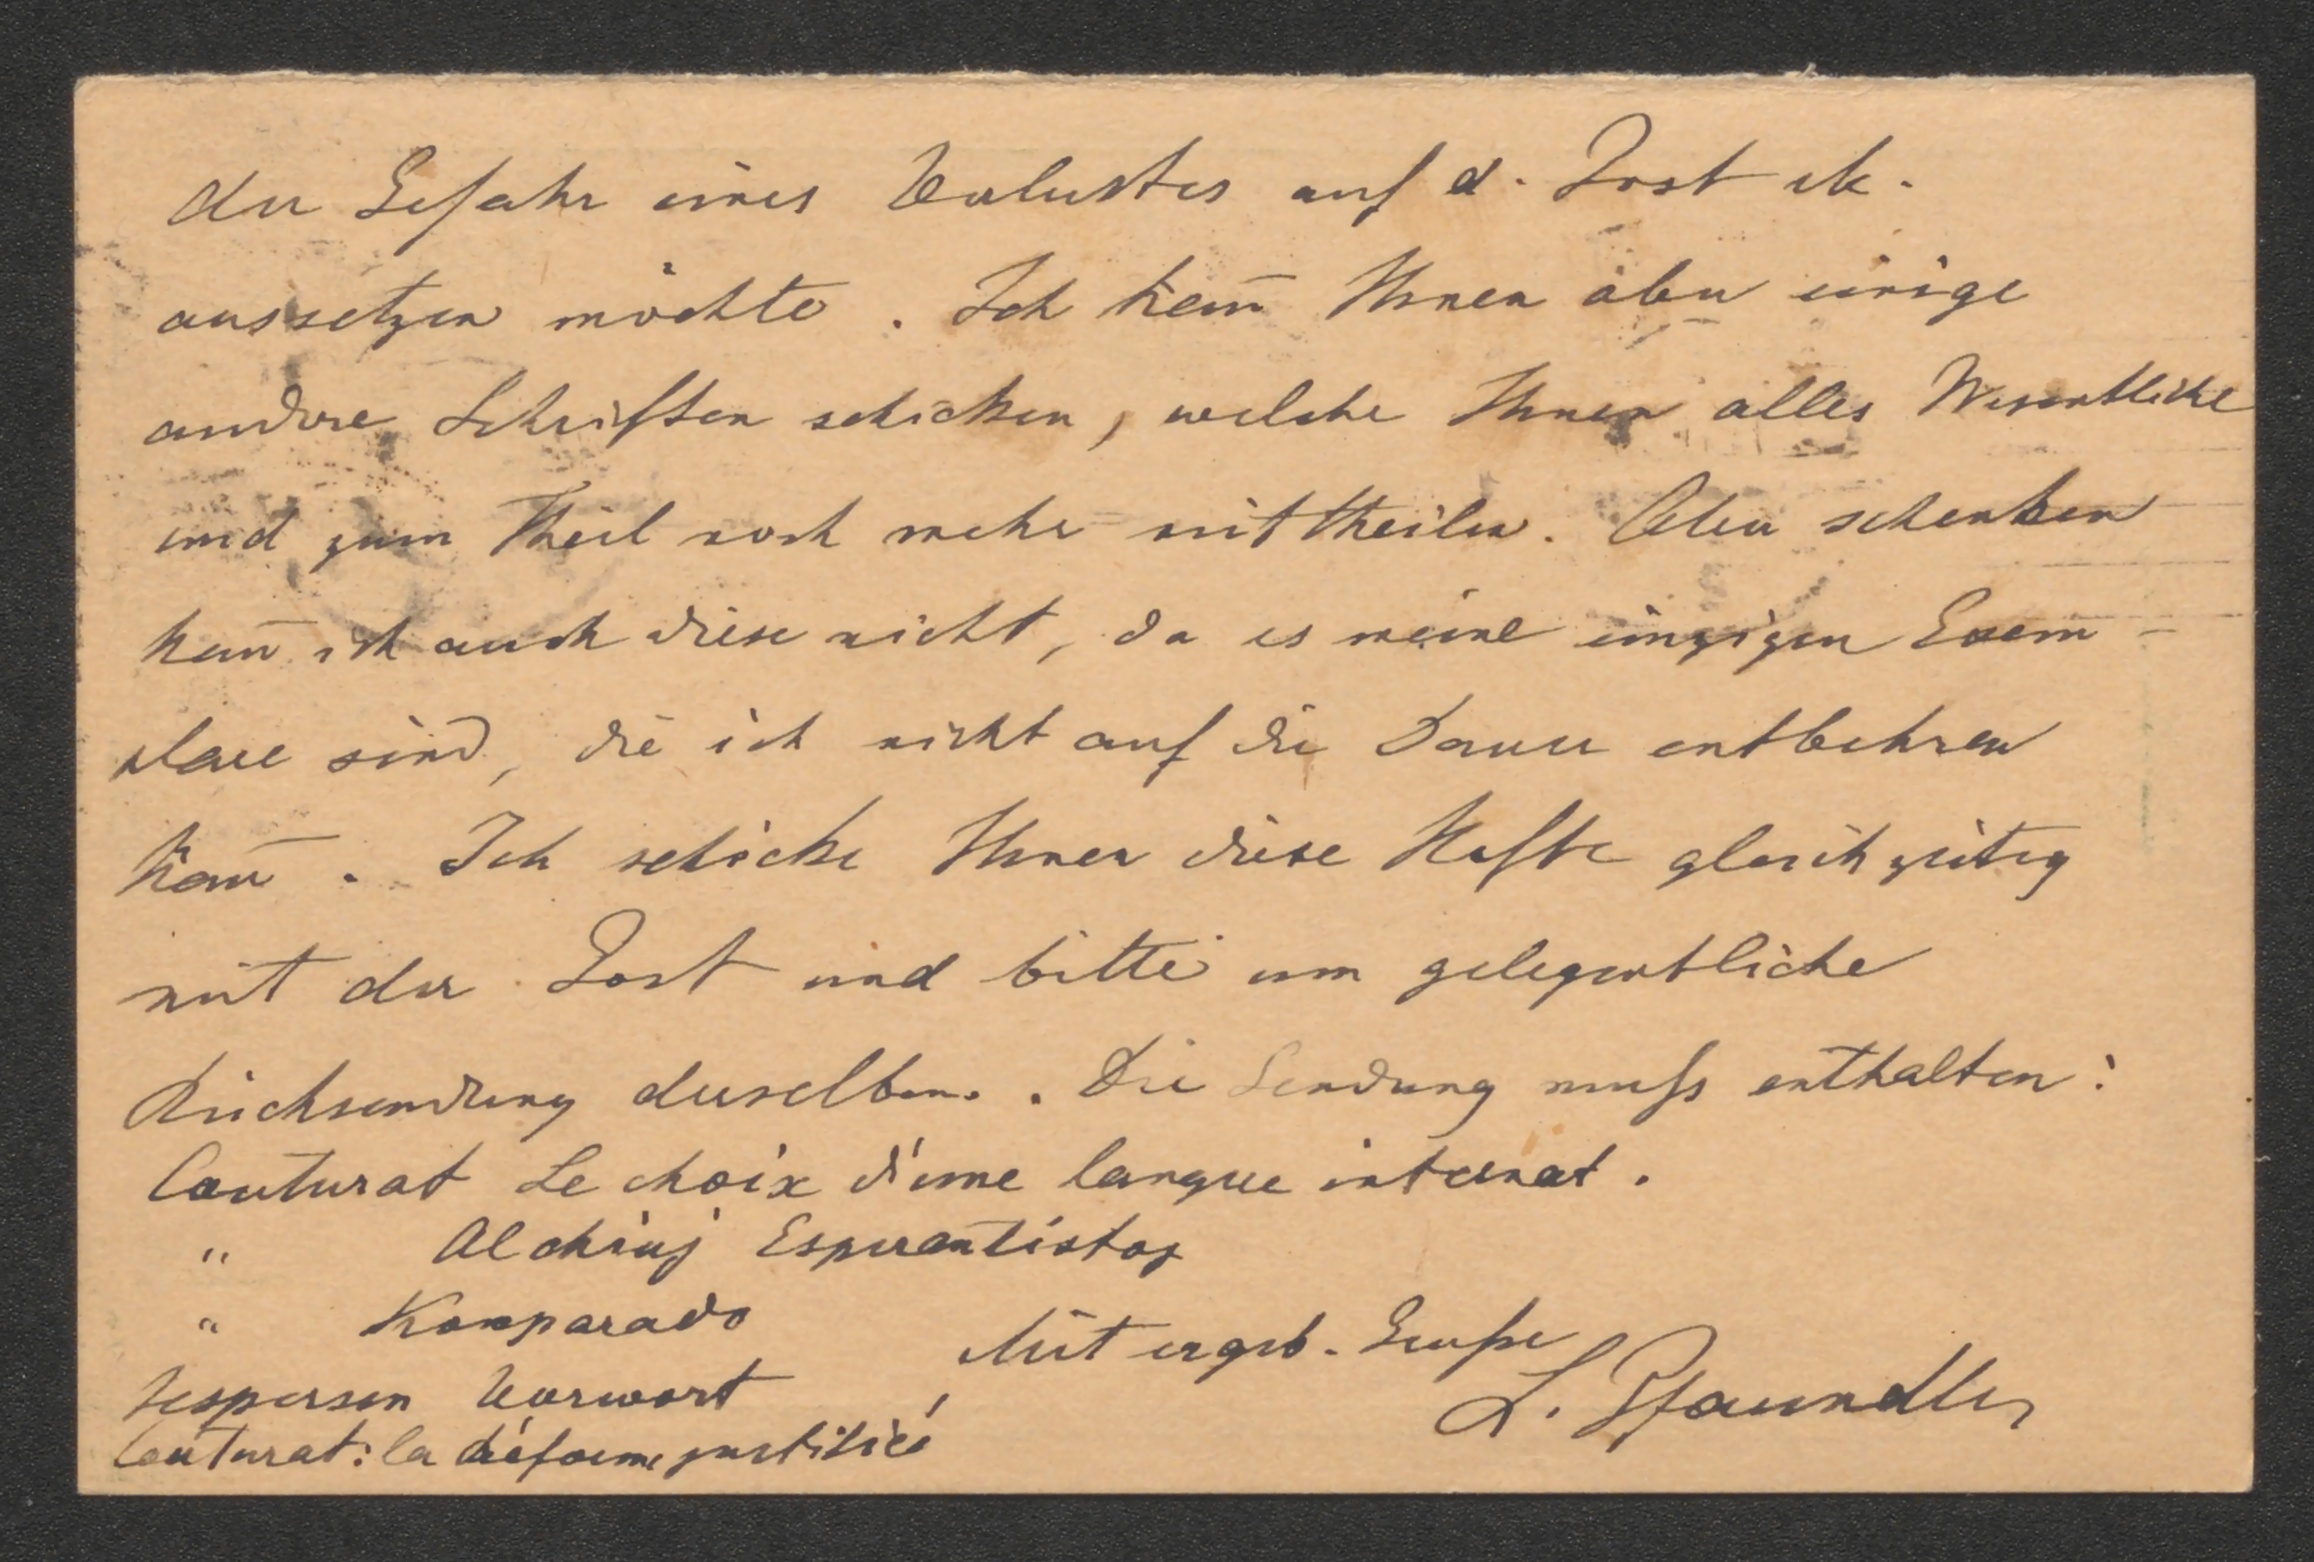 der Gefahr eines Verlustes auf d. Post etc.
aussetzen möchte. Ich kañ Ihnen aber einige
andere Schriften schicken, welche Ihnen alles Wesentliche
und zum Theil noch mehr mittheilen. Aber schenken
kañ ich auch diese nicht, da es meine einzigen Exem-
plare sind, die ich nicht auf die Dauer entbehren
kañ. Ich schicke Ihnen diese Hefte gleichzeitig
mit der Post und bitte um gelegentliche
Rücksendung derselben. Die Sendung muss enthalten:
Couturat Le choix d'une langue internat.
" Al chiuj Esperantistoj
" Komparado
Mit ergeb. Grusse
Jespersen Vorwort
L. Pfaundler
Couturat: la réforme justifiée